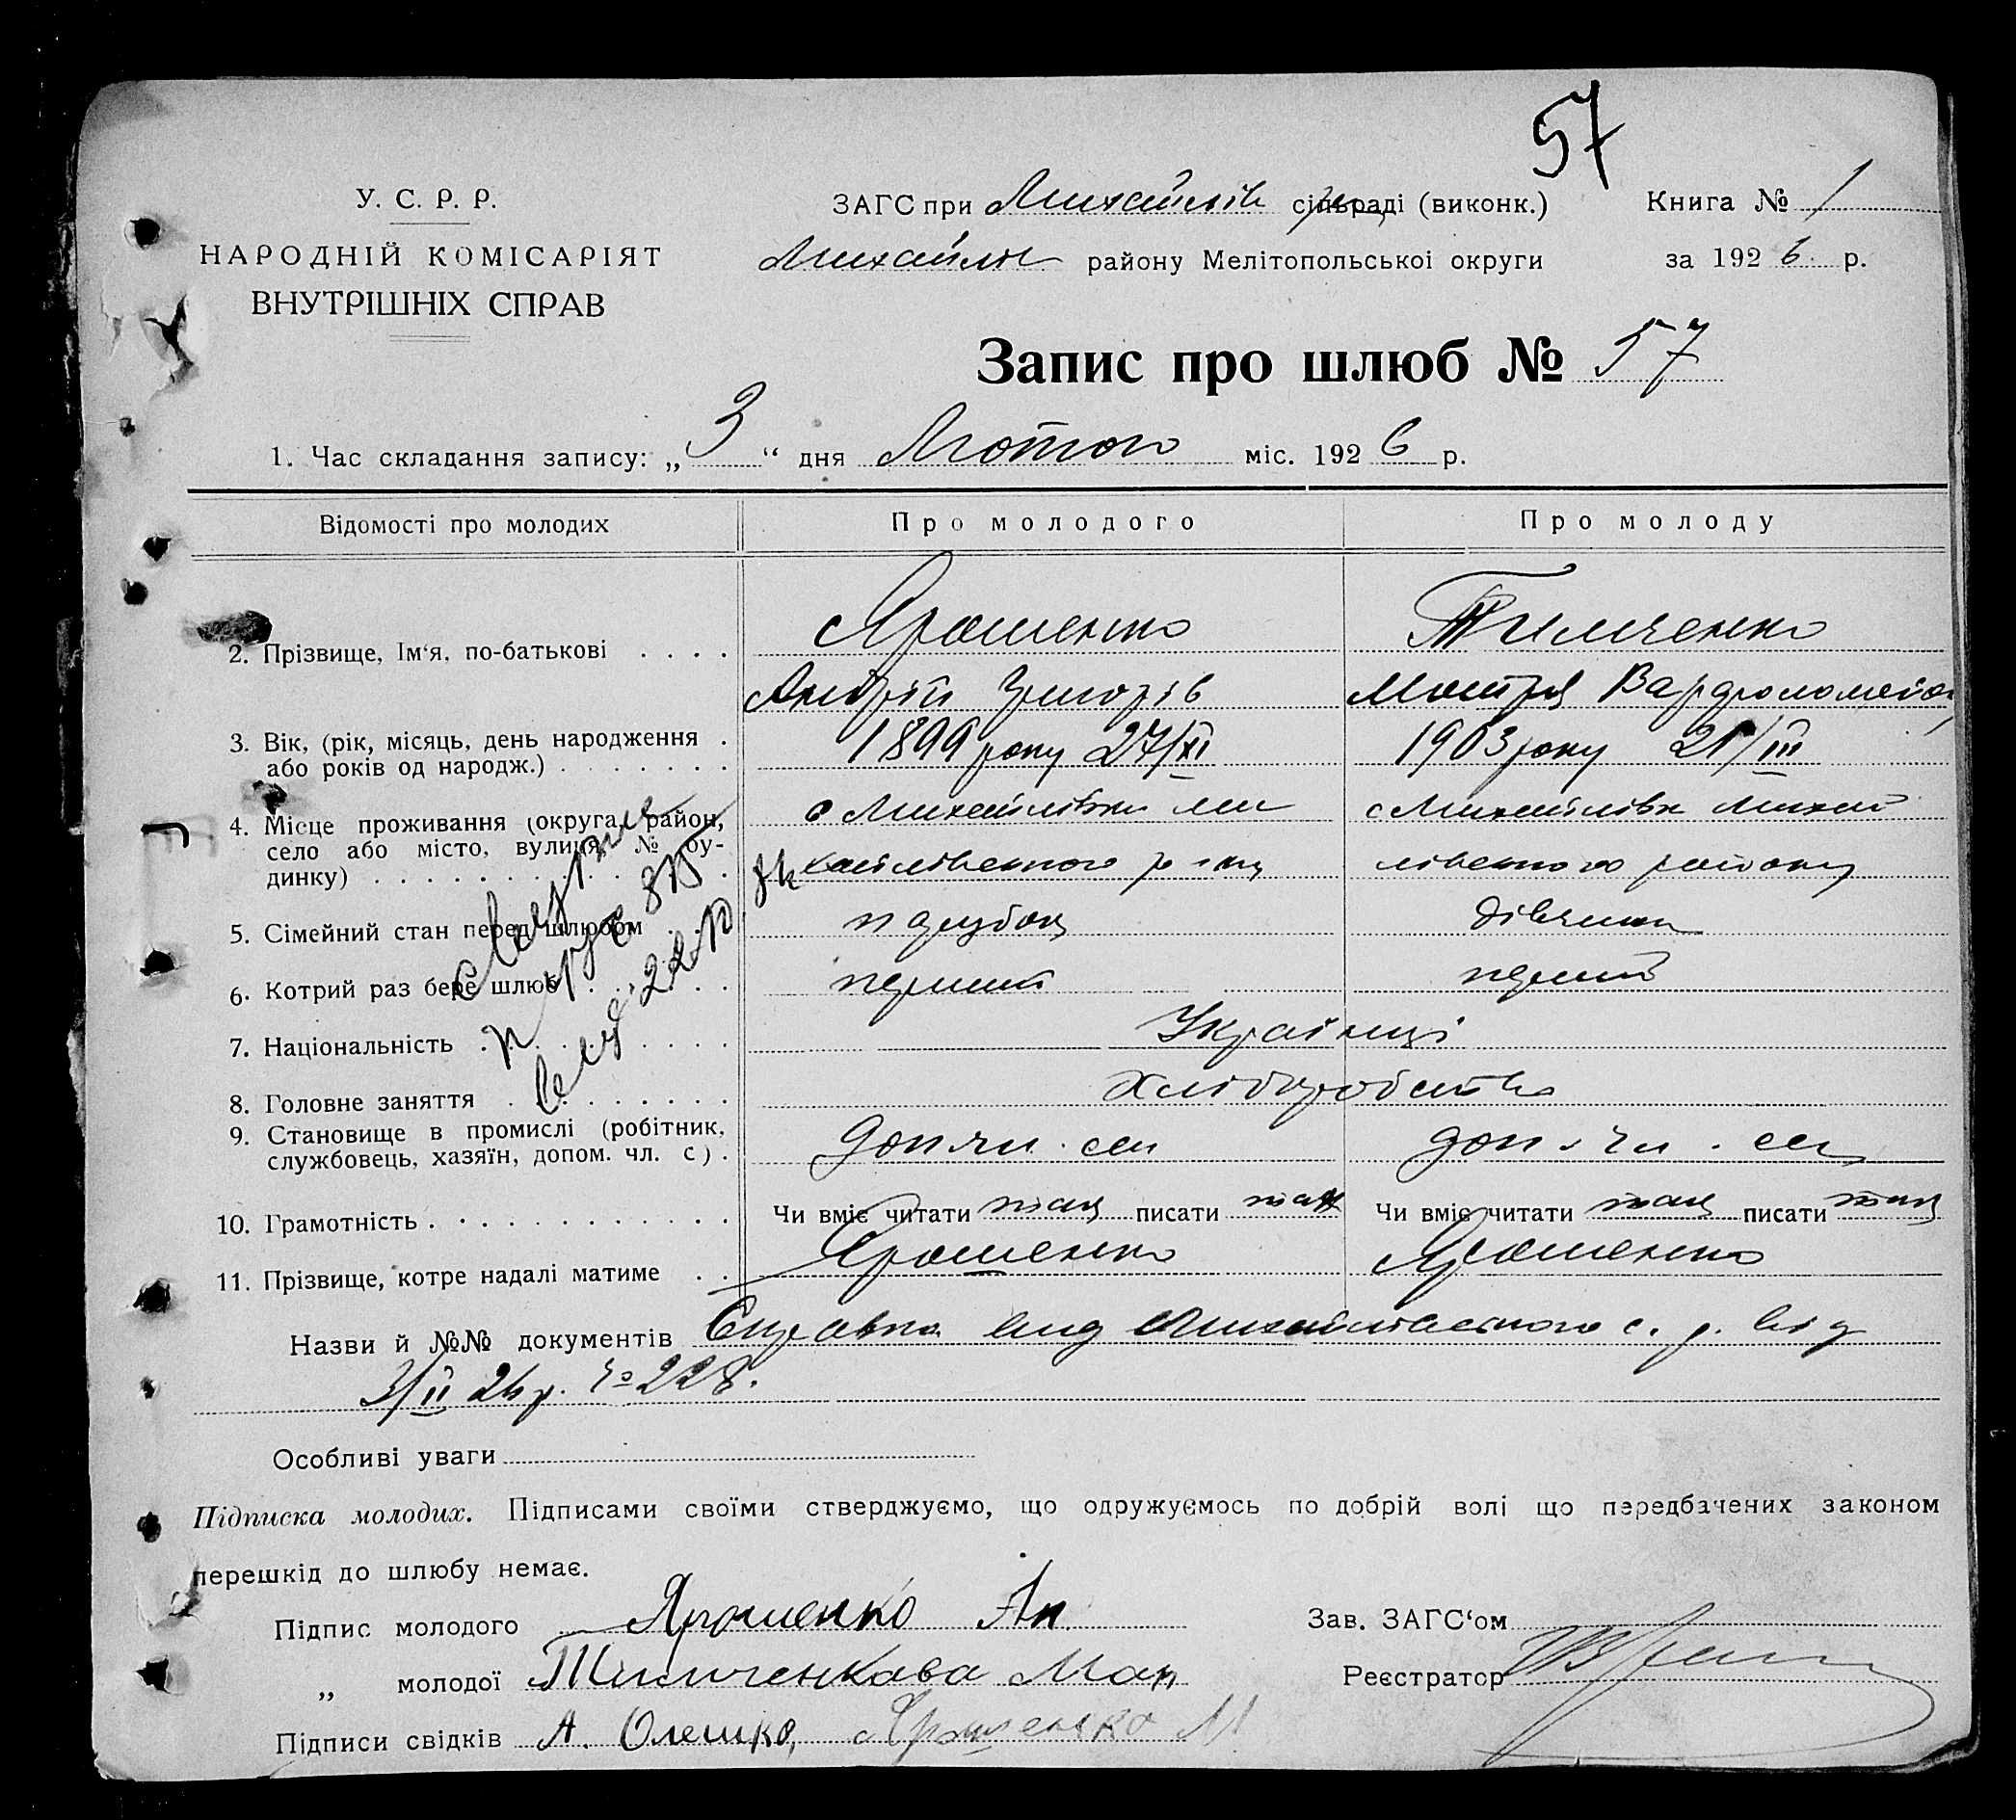 57
У. С. Р. Р.
НАРОДНІЙ КОМІСАРІЯТ
ВНУТРІШНІХ СПРАВ
ЗАГС при Михайлів сільраді (виконк.)
Михайлів району Мелітопольськоі округи
Книга № 1
за 1926 р.
Запис про шлюб № 57
1. Час складання запису: „3“ дня Лютого міс. 1926 р.
Відомості про молодих
Про молодого
Про молоду
2. Прізвище, Ім‘я, по-батькові
Ярошенко
Андрій Григорів
Тимченко
Мотря Варфоломейов
3. Вік, (рік, місяць, день народження
або років од народж.)
1899 року 27/XI
1903 року 21/III
4. Місце проживання (округа, район,
село або місто, вулиця, № бу-
динку)
с Михайлівки Ми
хайлівського району
с Михайлівк Михай
лівского району
5. Сімейний стан перед шлюбом
парубок
дівчина
6. Котрий раз бере шлюб
перший
перший
7. Національність
Українці
8. Головне заняття
Хліборобство
9. Становище в промислі (робітник,
службовець, хазяїн, допом. чл. с).
доп чл. сем
доп. чл. сем
10. Грамотність
Чи вміє читати так писати так
Чи вміє читати так писати так
11. Прізвище, котре надалі матиме
Ярошенко
Ярошенко
Назви й №№ документів Справка вид Михайлівського с. р. від
3/II 26 р. № 228.
Особливі уваги
Підписка молодих. Підписами своїми стверджуємо, що одружуємось по добрій волі що передбачених законом
перешкід до шлюбу немає.
Підпис молодого Ярошенко Ан
„ молодої Тимченкова Мот
Підписи свідків А. Олешко, Ярошенко М
Зав. ЗАГС‘ом
Реєстратор